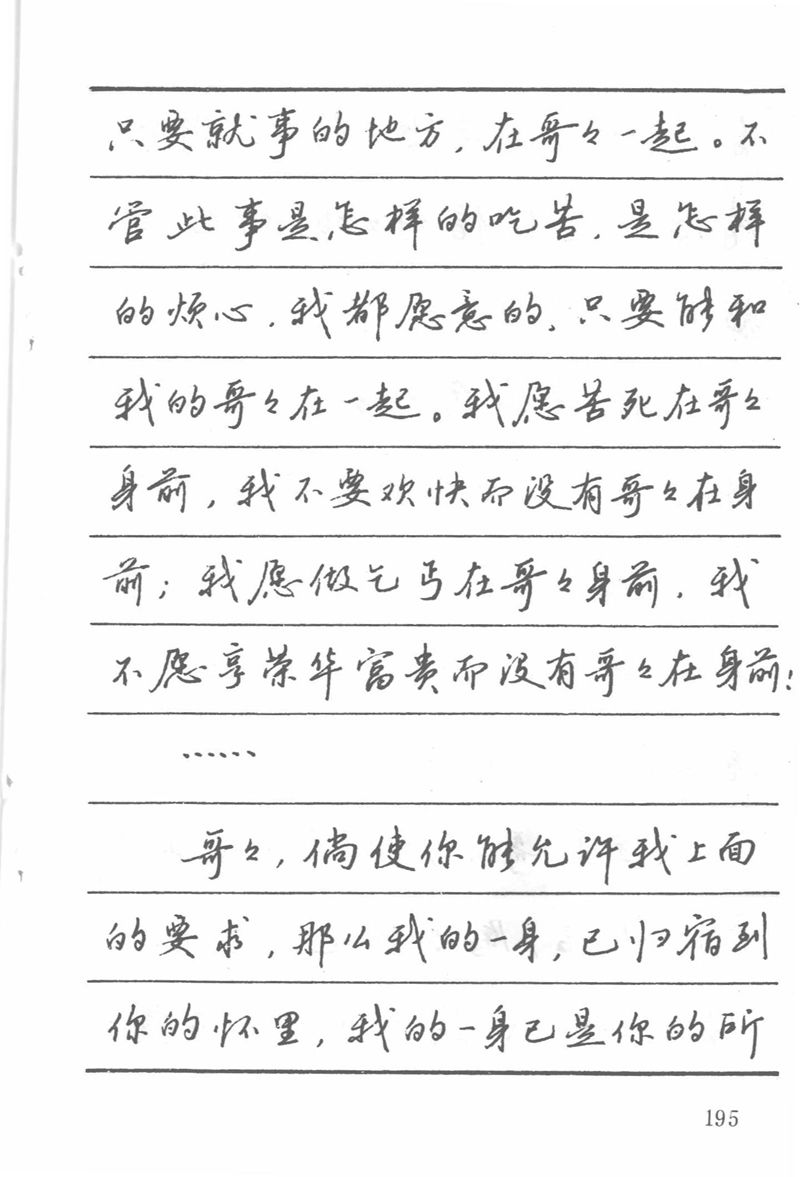 只要就事的地方，在哥々一起。不
管此事是怎样的吃苦，是怎样
的烦心，我都愿意的，只要能和
我的哥々在一起。我愿苦死在哥々
身前，我不要欢快而没有哥々在身
前；我愿做乞丐在哥々身前，我
不愿享荣华富贵而没有哥々在身前；
……
哥々，倘使你能允许我上面
的要求，那么我的一身，已归宿到
你的怀里，我的一身已是你的所
195